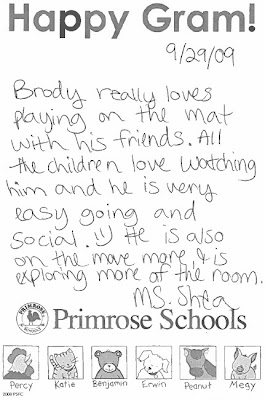 Happy Gram!
9/29/09
Brody really loves
playing on the mat
with his friends. All
the children love watching
him and he is very
easy going and
social. :) He is also
on the move more & is
exploring more of the room.
Ms. Shea
PRIMROSE
Primrose Schools
Percy Katie Benjamin Erwin Peanut Megy
2008 PSFC